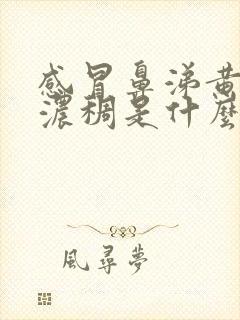 感冒鼻涕黄
濃稠是什麼
風尋夢